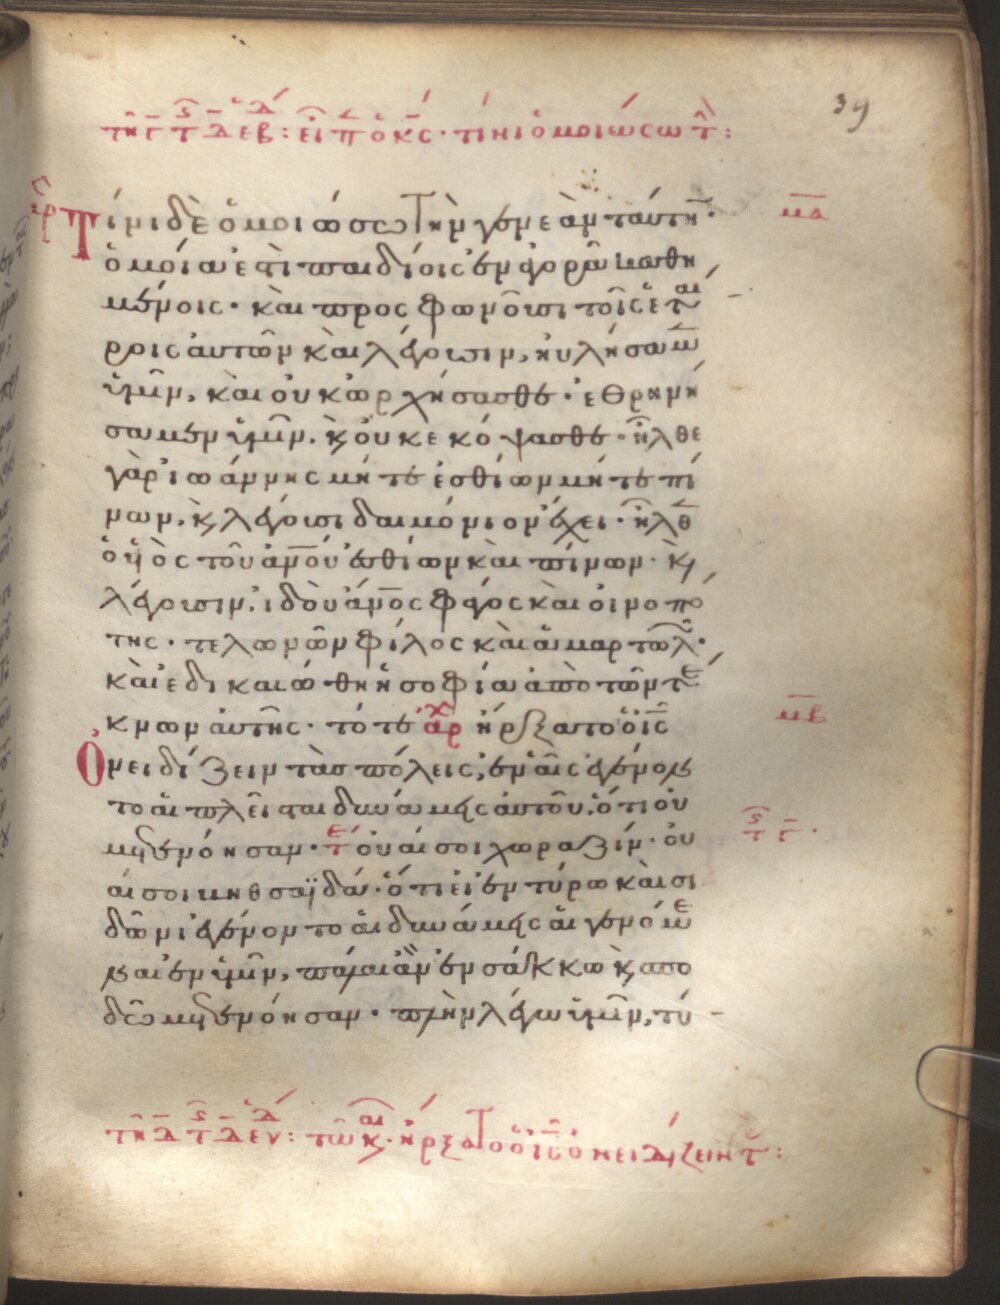 39
τῆς γ τ δ ἑβ: εἶπ ὁ κς· τίνι ὁμοιώσω τ:
ἀρ Τίνι δὲ ὁμοιώσω τὴν γενεὰν ταύτην·
ὁμοία ἐστὶ παιδίοις ἐν ἀγορᾶ καθη
μένοις· καὶ προσφωνοῦσι τοῖς ἑταί
ροις αὐτῶν καὶ λέγουσιν, ηὐλήσαμεν
ὑμῖν, καὶ οὐκ ὠρχήσασθε· ἐθρηνή
σαμεν ὑμῖν. κ οὐκ ἐκόψασθε· ἦλθε
γὰρ ἰωάννης μήτε ἐσθίων μήτε πί
νων. κ λέγουσι δαιμόνιον ἔχει· ἦλθ
ὁ ὑιὸς τοῦ ἀνου ἐσθίων καὶ πίνων· κ
λέγουσιν. ἰδοὺ ἄνος φάγος καὶ οἰνοπο
της· τελωνῶν φίλος καὶ ἁμαρτωλῶ·
καὶ ἐδικαιώθη ἡ σοφία ἀπὸ τῶν τέ
κνων αὐτῆς· τότε ἀρχ ἤρξατο ὁ ις
Ὀνειδίζειν τὰς πόλεις, ἐν αἷς ἐγένον
το αἱ πλεῖσται δυνάμεις αὐτοῦ. ὅτι οὐ
μετενόησαν· τε οὐαί σοι χωραζίν· οὐ
αί σοι βηθσαϊδά· ὅτι εἰ ἐν τύρω καὶ σι
δῶνι ἐγένοντο αἱ δυνάμεις αἱ γενόμε
ναι ἐν ὑμῖν, πάλαι ἂν ἐν σάκκω κ σπο
δῶ μετενόησαν· πλὴν λέγω ὑμῖν, τύ
μα
μβ
τῆ δ τ δ ἑυ: τῶ κ. ἤρξατο ὁ ις ὀνειδίζειν τ: